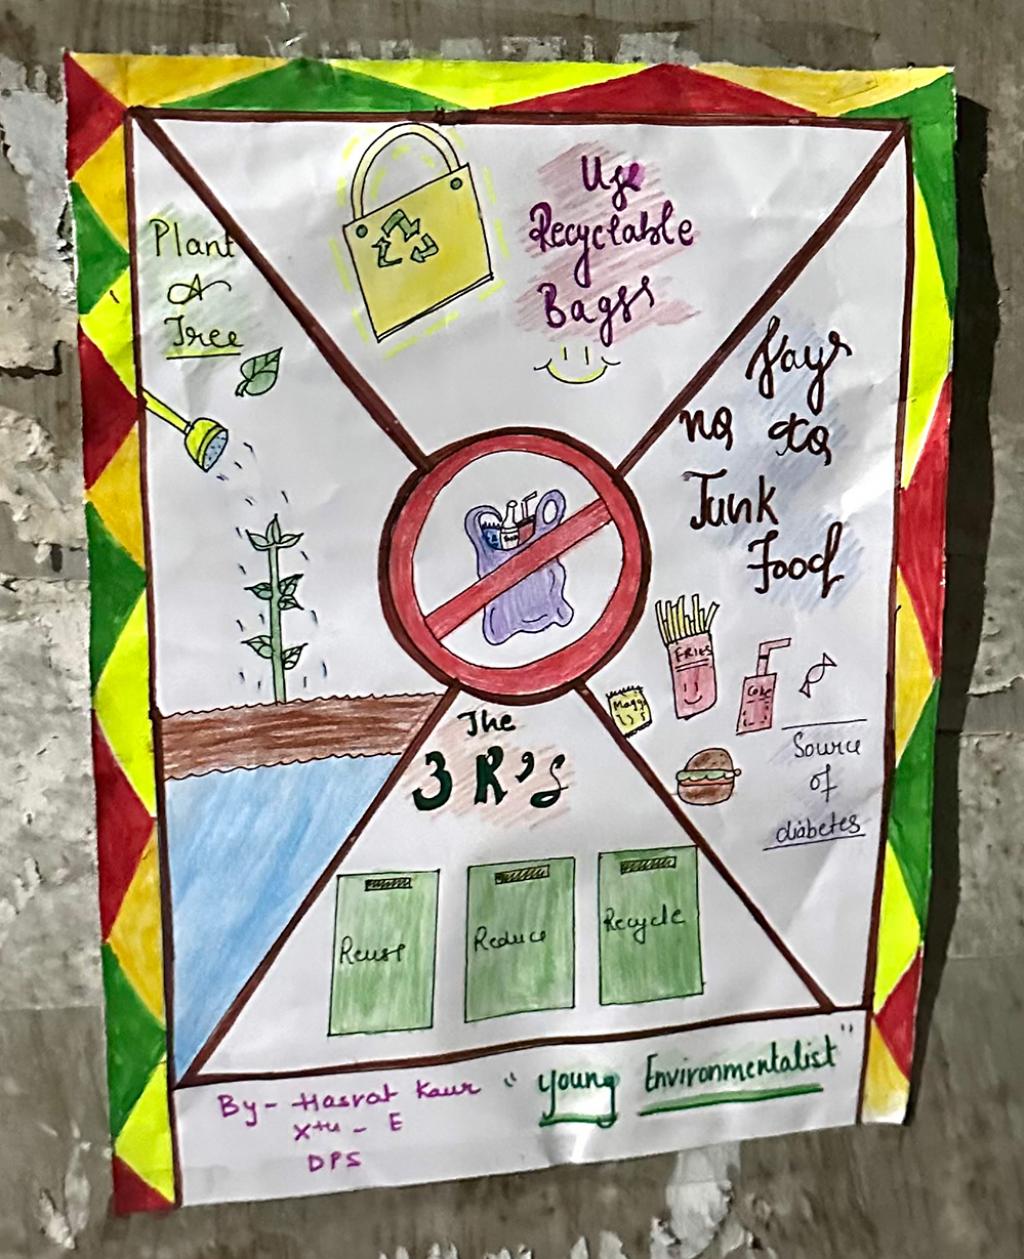 Use
Recyclable
Bags
Plant
A
Tree
Says
no to
Junk
Food
FRIES
Coke
Maggi
Source
of
diabetes
The
3 R's
Reuse
Reduce
Recycle
By - Hasrat Kaur
Xth - E
DPS
"Young Environmentalist"